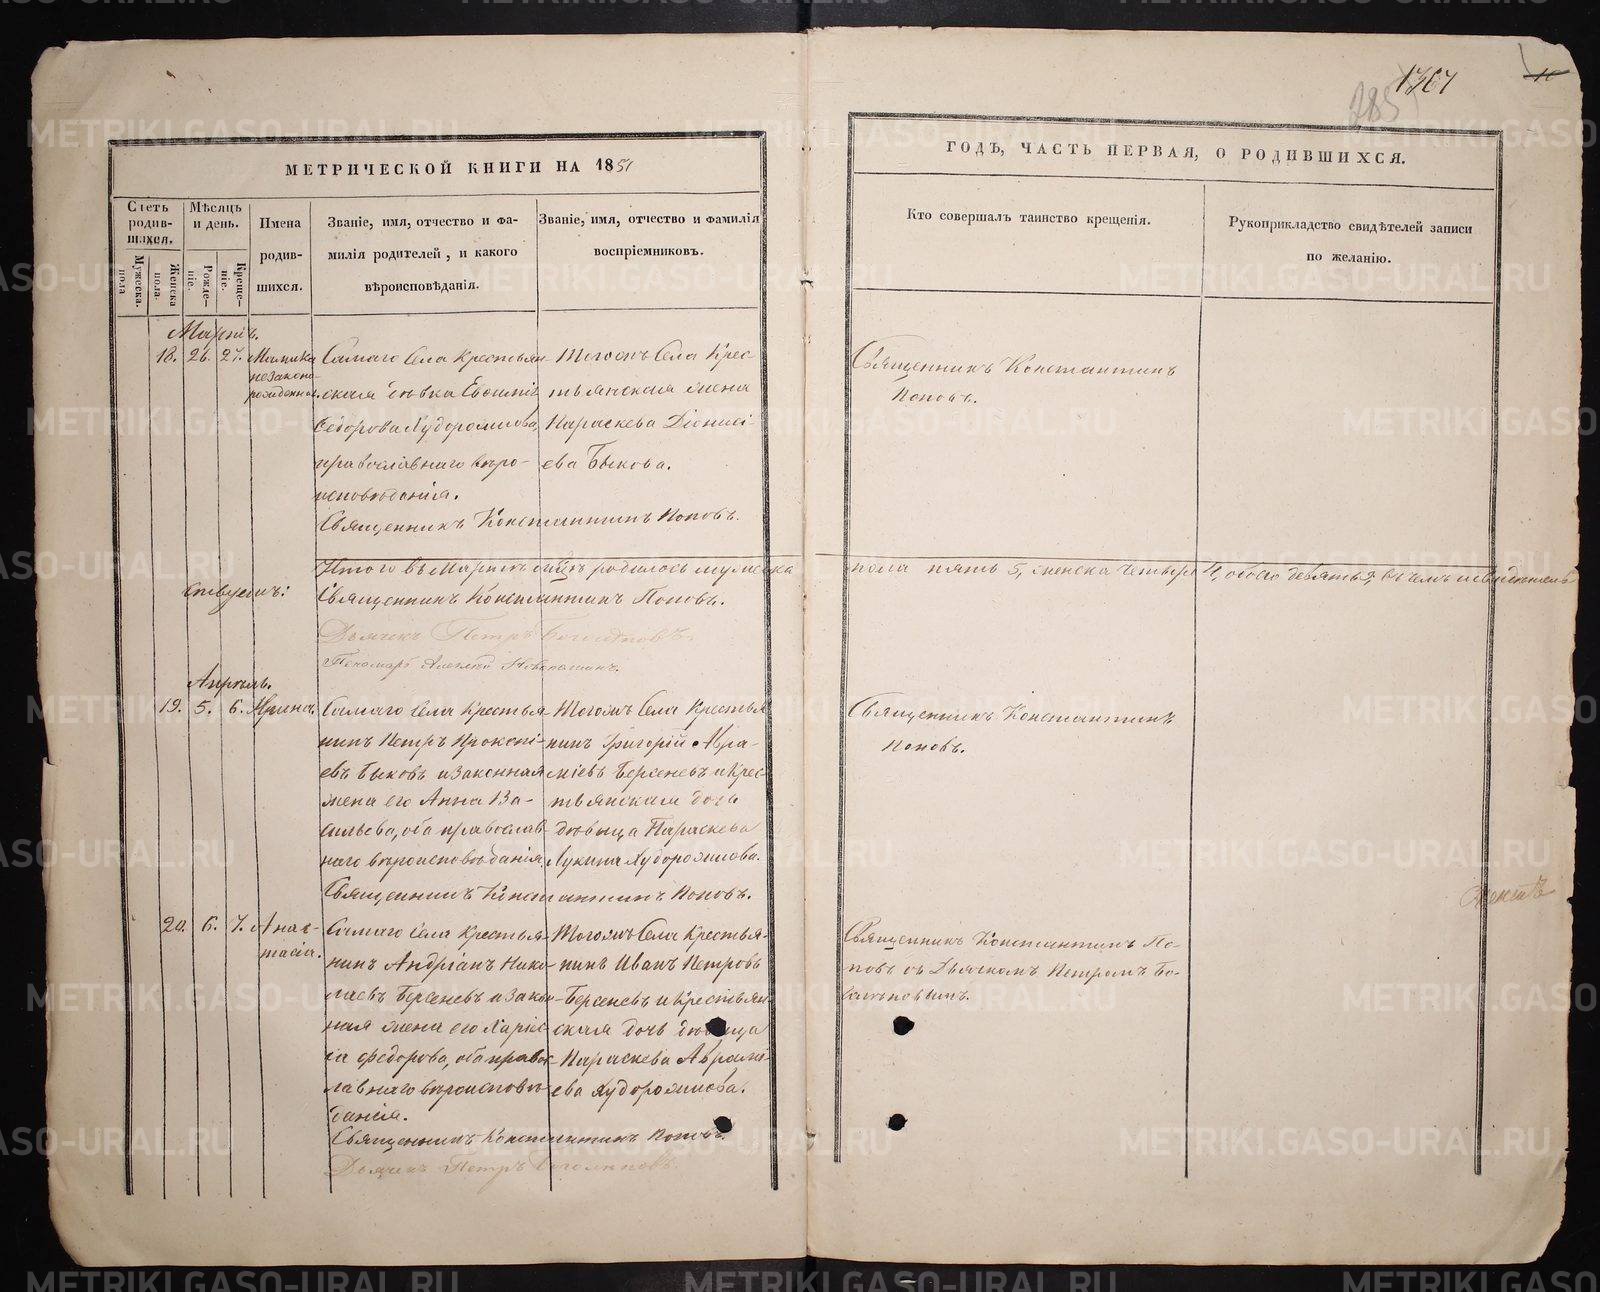 1767
285
МЕТРИЧЕСКОЙ КНИГИ НА 1851
ГОДЪ, ЧАСТЬ ПЕРВАЯ, О РОДИВШИХСЯ.
Счетъ родив-шихся.
Мужеска пола
Женска пола.
Мѣсяцъ и день.
Рожде-ніе.
Креще-ніе.
Имена
родив-
шихся.
Званіе, имя, отчество и фа-
милія родителей, и какого
вѣроисповѣданія.
Званіе, имя, отчество и фамилія
воспріемниковъ.
Кто совершалъ таинство крещенія.
Рукоприкладство свидѣтелей записи
по желанію.
Мартъ.
18. 26. 27.
незаконо-
рожденная.
Самаго Села Крестьян-
ская дѣвка
Ѳедорова Худорожкова,
православнаго вѣро-
исповѣданія.
Священникъ Константинъ Поповъ.
Тогожъ Села Крес-
тьянская жена
Параскева Діонисі-
ева Быкова.
Священникъ Константинъ
Поповъ.
Итого въ Мартѣ родилось мужеска
пола пять 5, женска четыре 4, обоего девять 9 въ чемъ и свидѣтель-
ствуемъ:
Священникъ Константинъ Поповъ.
Дьячекъ Петръ
Пономарь
Апрѣль.
19. 5. 6. Ирина.
Самаго Села Крестья-
нинъ Петръ Прокопі-
евъ Быковъ и законная
жена его Анна Ва-
сильева, оба православ-
наго вѣроисповѣданія.
Священникъ Константинъ Поповъ.
Тогожъ Села Крестья-
нинъ Григорій Авра-
міевъ Берсеневъ и Крес-
тьянская дочь
дѣвица Параскева
Лукина Худорожкова.
Священникъ Константинъ
Поповъ.
20. 6. 7. Анас-
тасія.
Самаго Села Крестья-
нинъ Андріанъ Нико-
лаевъ Берсеневъ и закон-
ная жена его
Ѳедорова, оба правос-
лавнаго вѣроисповѣ-
данія.
Священникъ Константинъ Поповъ.
Дьячекъ Петръ
Тогожъ Села Крестья-
нинъ Иванъ Петровъ
Берсеневъ и Крестьян-
ская дочь дѣвица
Параскева Аврамі-
ева Худорожкова.
Священникъ Константинъ По-
повъ съ Дьячкомъ Петромъ
METRIKI.GASO-URAL.RU